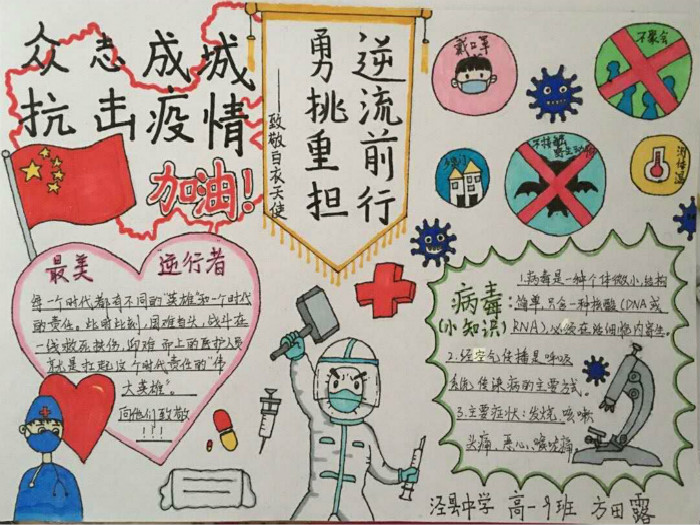 众志成城
抗击疫情
加油!
逆流前行
勇挑重担
——致敬白衣天使
戴口罩
不聚会
少
不接触
野生动物
测体温
最美 逆行者
每一个时代都有不同的"英雄"和一个时代
的责任。此时此刻,困难当头,战斗在
一线救死扶伤,迎难而上的医护人员
就是扛起这个时代责任的"伟
大英雄"。
向他们致敬
!!!
病毒
(小知识)
1.病毒是一种个体微小,结构
简单,只含一种核酸(DNA或
RNA),必须在活细胞内寄生
2.经空气传播是呼吸
系统传染病的主要方式。
3.主要症状:发烧,咳嗽
头痛、恶心、喉咙痛。
泾县中学 高一9班 方田露